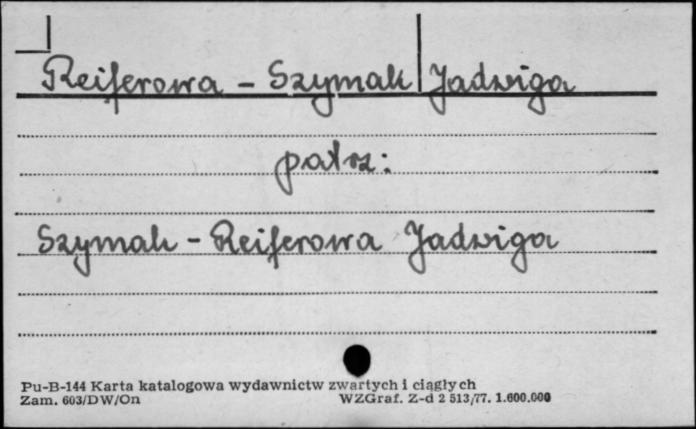 Reiferowa - Szymak Jadwiga
patrz:
Szymak - Reiferowa Jadwiga
Pu-B-144 Karta katalogowa wydawnictw zwartych i ciągłych
Zam. 603/DW/On WZGraf. Z-d 2 513/77. 1.600.000